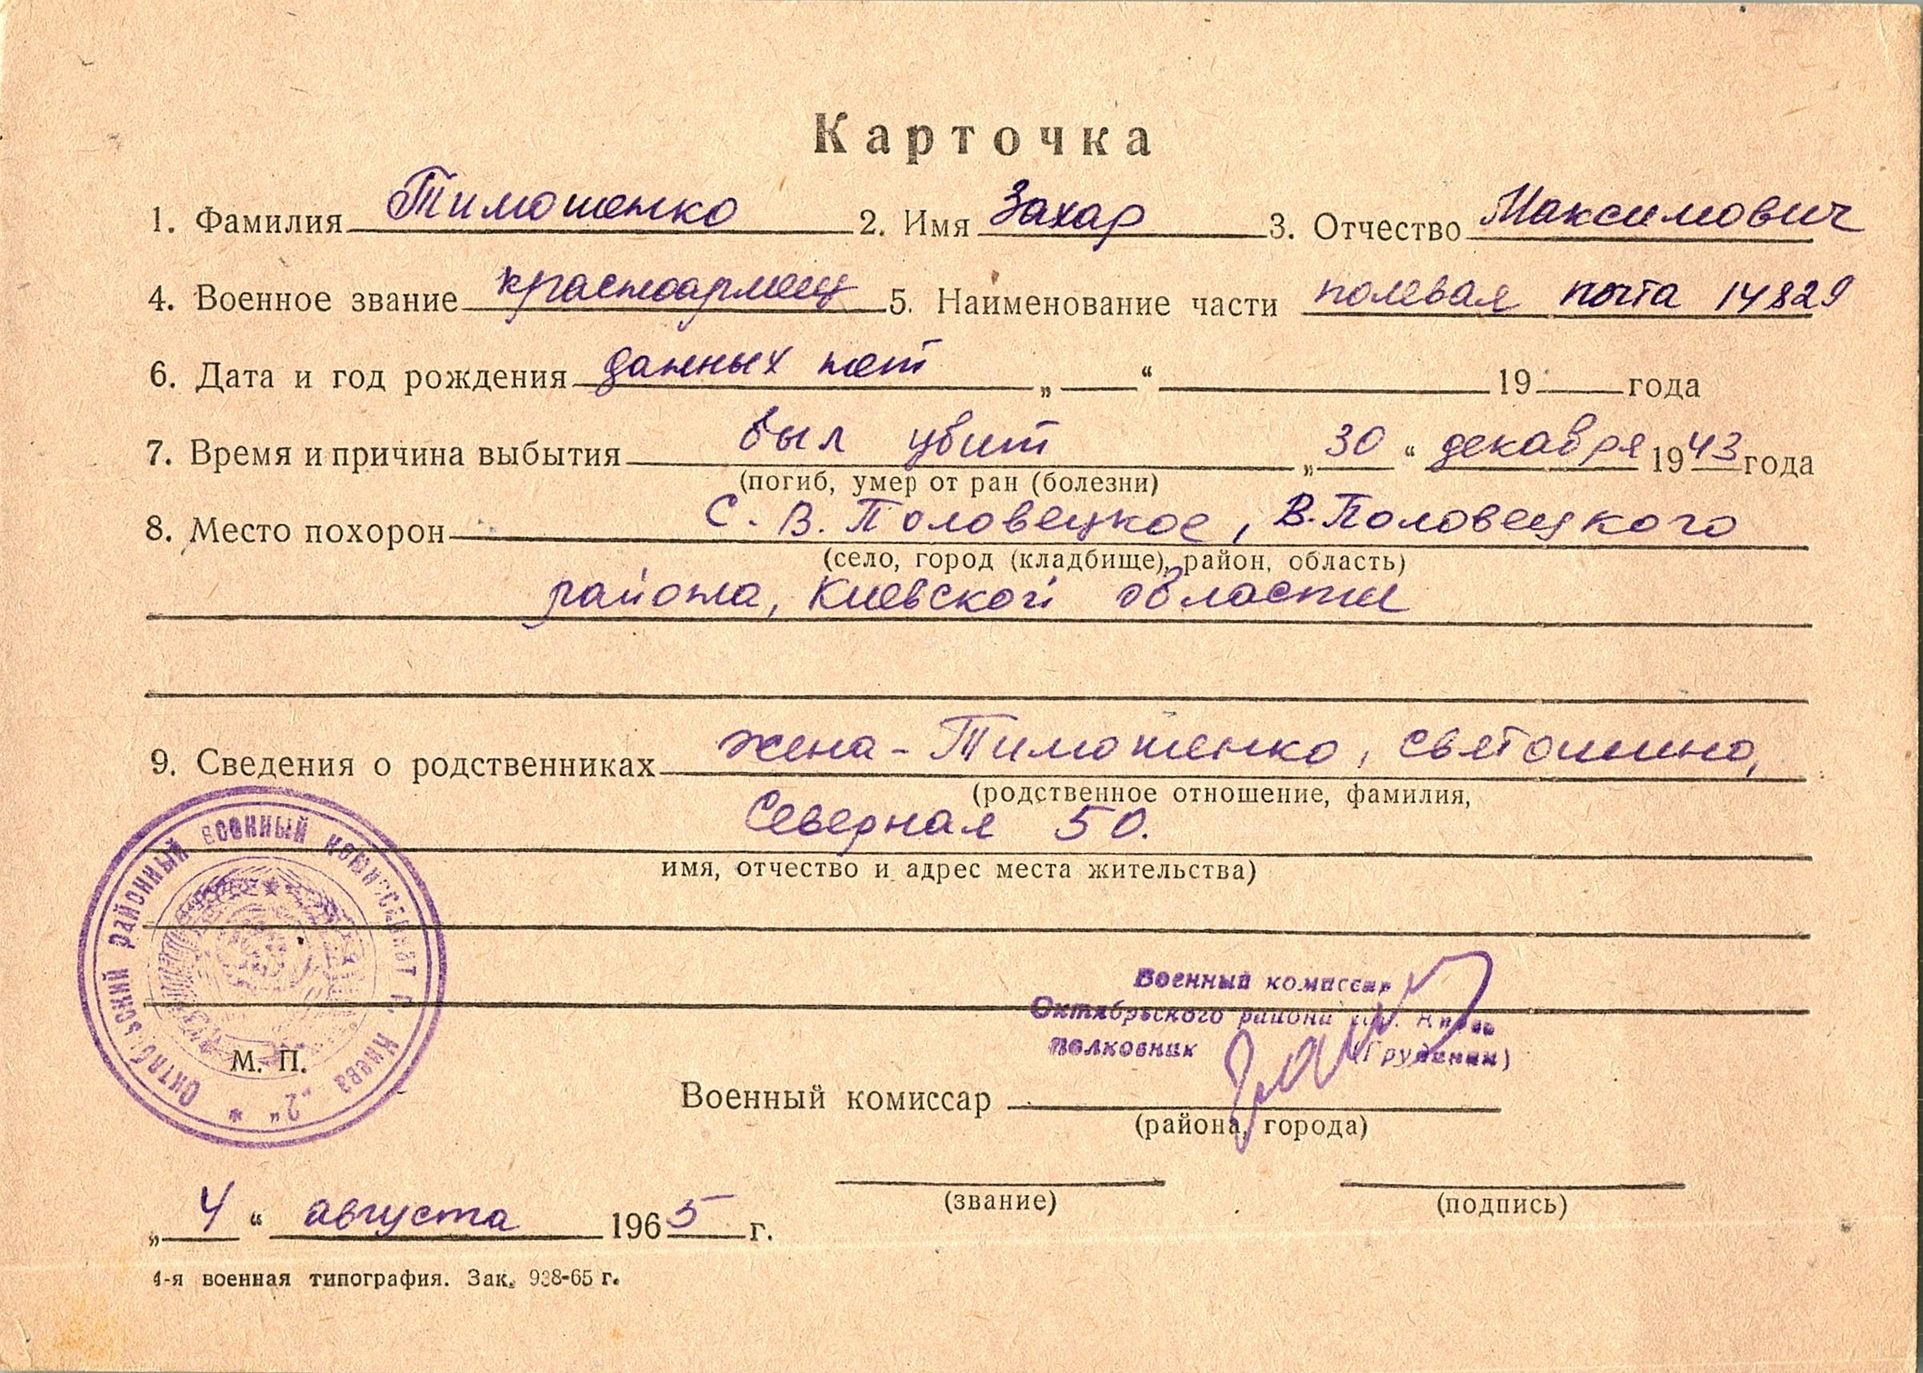 Карточка
1. Фамилия Тимошенко 2. Имя Захар 3. Отчество Максимович
4. Военное звание красноармеец 5. Наименование части полевая почта 14829
6. Дата и год рождения данных нет „ “ 19 года
7. Время и причина выбытия был убит „30“ декабря 1943 года
(погиб, умер от ран (болезни)
8. Место похорон С. В. Половецкое, В. Половецкого
(село, город (кладбище), район, область)
района, Киевской области
9. Сведения о родственниках жена - Тимошенко, Святошино,
(родственное отношение, фамилия,
Северная 50.
имя, отчество и адрес места жительства)
Октябрьский районный военный комиссариат г. Киева „2“ *
М. П.
Военный комиссар
Октябрьского района гор. Киева
полковник (Грудинин)
Военный комиссар
(района, города)
(звание) (подпись)
„4“ августа 1965 г.
4-я военная типография. Зак. 938-65 г.